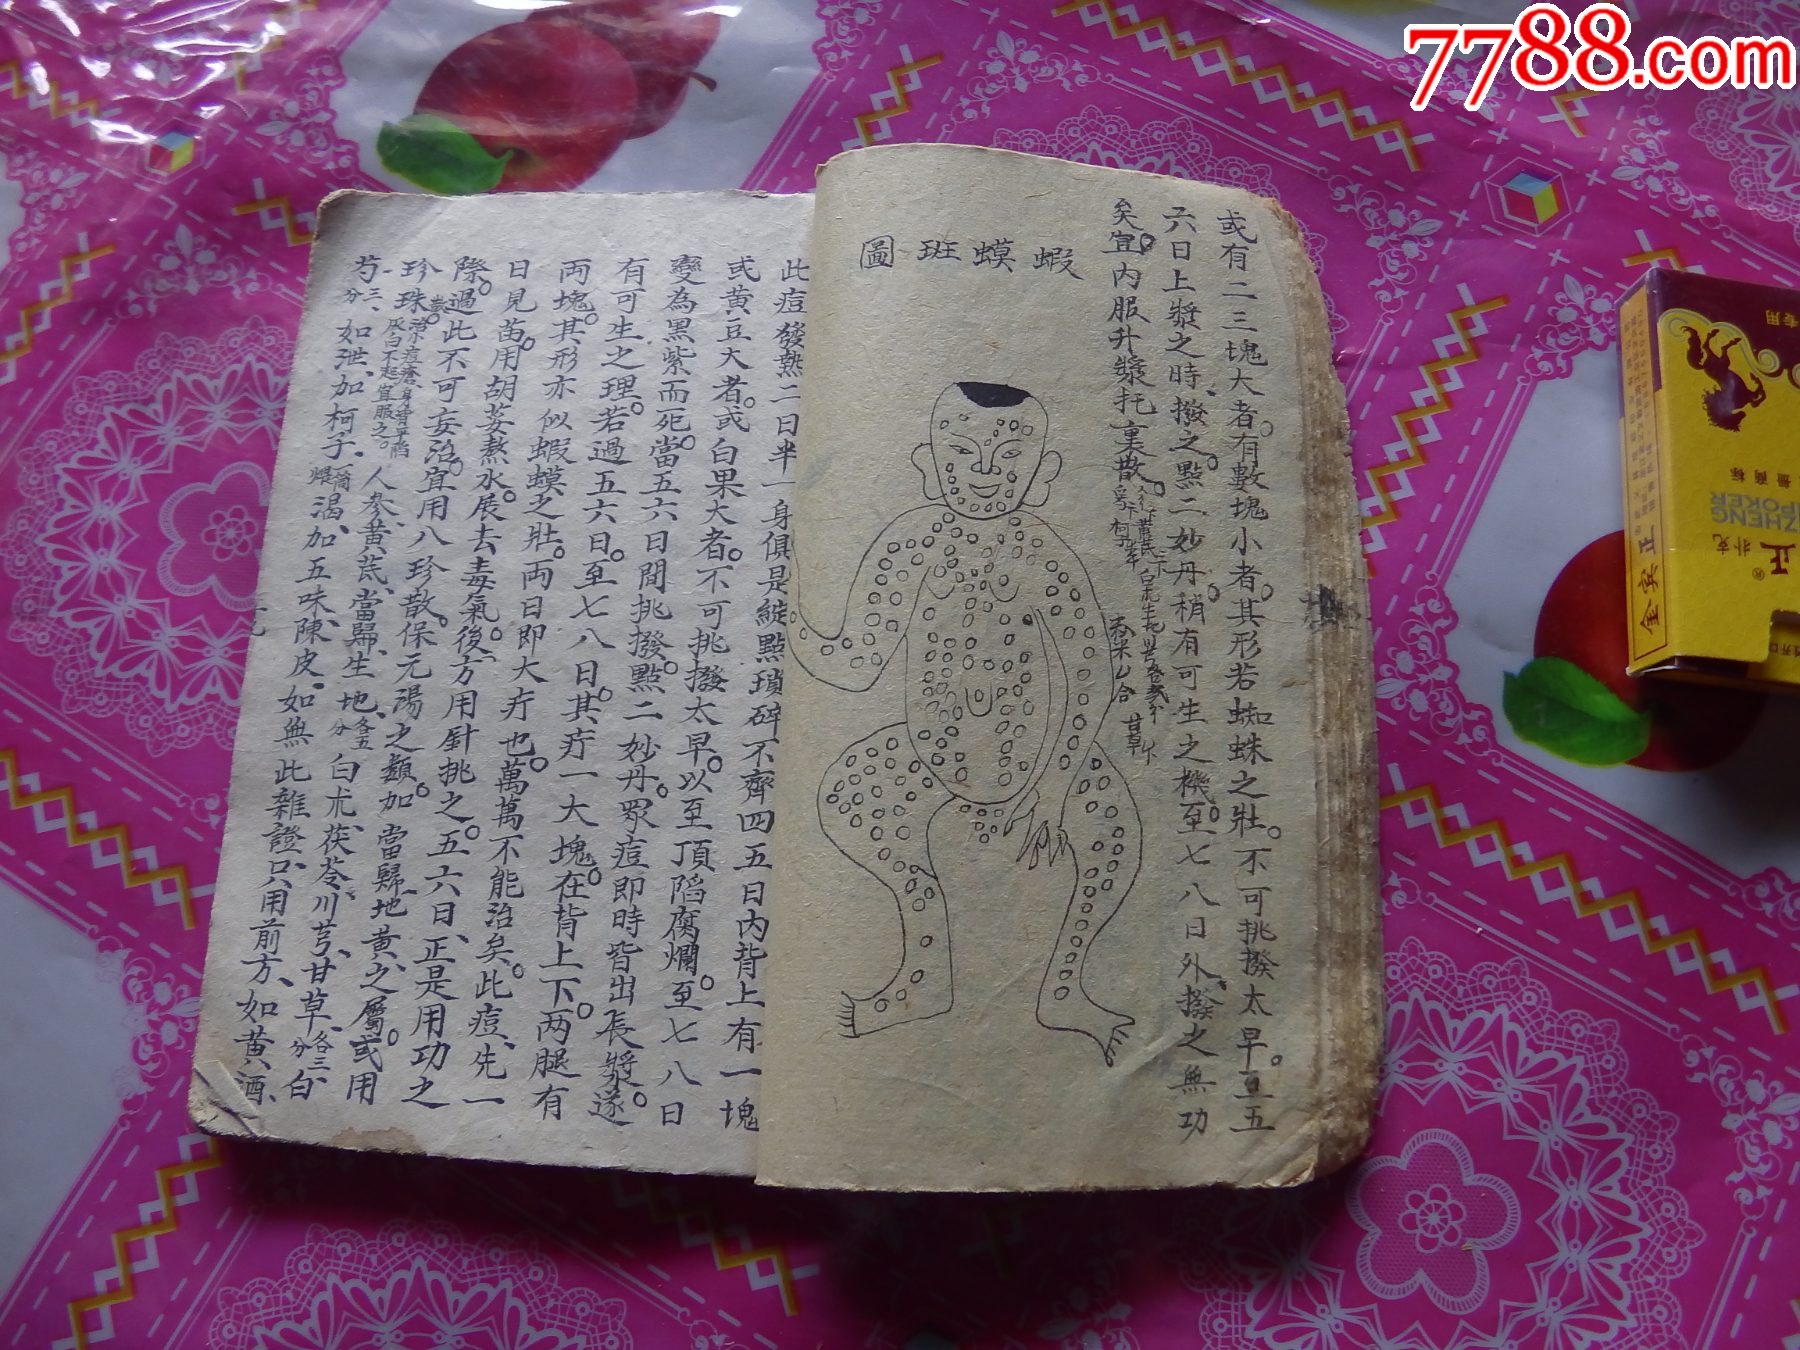 7788.com
或有二三塊大者。有數塊小者。其形若蜘蛛之壯。不可挑撥太早。直五
六日上漿之時、撥之。點二妙丹、稍有可生之機。至七八日外、撥之無功
矣。宜內服升漿托裏散。
蝦蟆斑圖
此痘發熱二日半一身俱是綻點瑣碎不齊四五日內背上有一塊
或黃豆大者。或白果大者。不可挑撥太早。以至頂陷腐爛。至七八日
變為黑紫而死。當五六日間挑撥。點二妙丹眾痘即時皆出長漿。遂
有可生之理。若過五六日。至七八日。其疔一大塊。在背上下。两腿有
両塊。其形亦似蝦蟆之壯。両日即大疔也。萬萬不能治矣。此痘、先一
日見苗。用胡荽熬水。展去毒氣。後方用針挑之。五六日、正是用功之
際。過此不可妄治。宜用八珍散。保元湯之類。加當歸、地黃、之屬。或用
珍珠散。治小痘瘡、身背平陷灰白不起宜服之。人參、黃芪、當歸、生地、各五分白朮、茯苓、川芎、甘草、各三分、白
芍三分、如泄、加柯子、渴、加五味、陳皮。如無此雜證、只用前方、如黃酒、
正
金宾
扑克
商标
ZHENG
POKER
专用